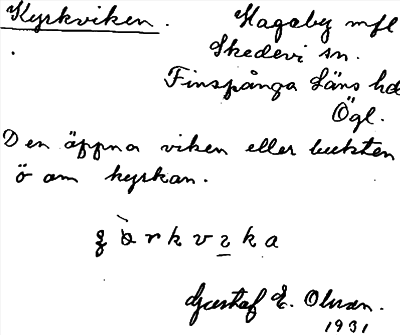 Kyrkviken.
Hagaby mfl
Skedevi sn.
Finspånga Läns hd
Ögl.
Den öppna viken eller bukten
ö om kyrkan.
Gustaf E. Olsson.
1931